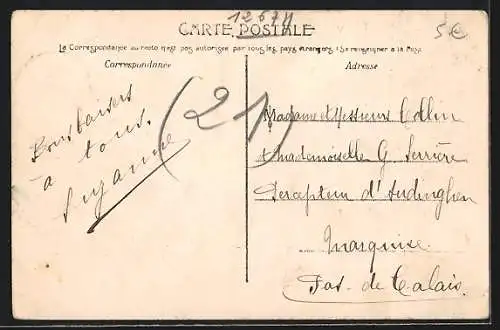 CARTE POSTALE
12674
5€
La Correspondance au recto n'est pas autorisée par tous les pays étrangers (Se renseigner à la Poste
Correspondance
Adresse
(21)
Bons baisers
à tous.
Suzanne
Madame et Messieurs Collin
et Mademoiselle G. Serrière
Percepteur d'Audinghen
Marquise
Pas-de Calais